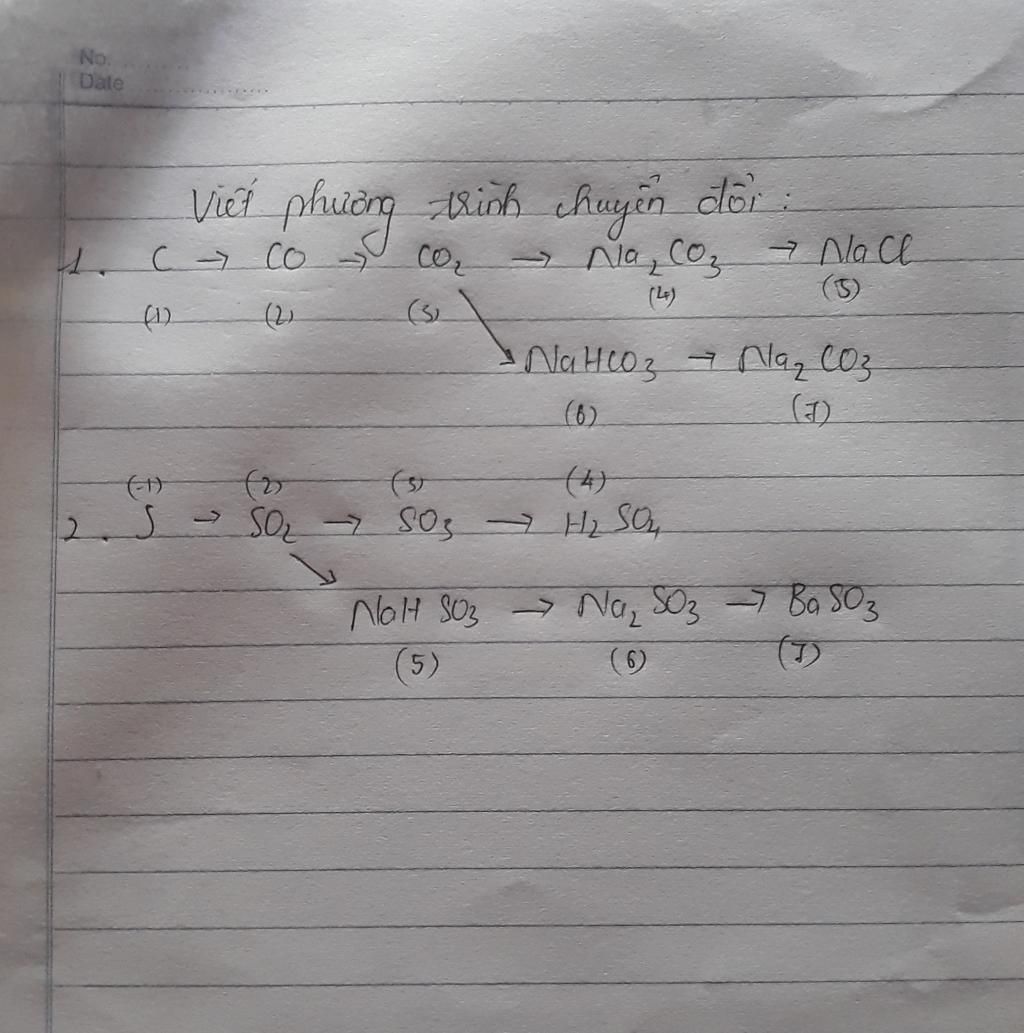 No. ............
Date ....................
Viết phương trình chuyển đổi :
1. C → CO → CO₂ → Na₂CO₃ → NaCl
(1) (2) (3) (4) (5)
NaHCO₃ → Na₂CO₃
(6) (7)
(1) (2) (3) (4)
2. S → SO₂ → SO₃ → H₂SO₄
NaHSO₃ → Na₂SO₃ → BaSO₃
(5) (6) (7)